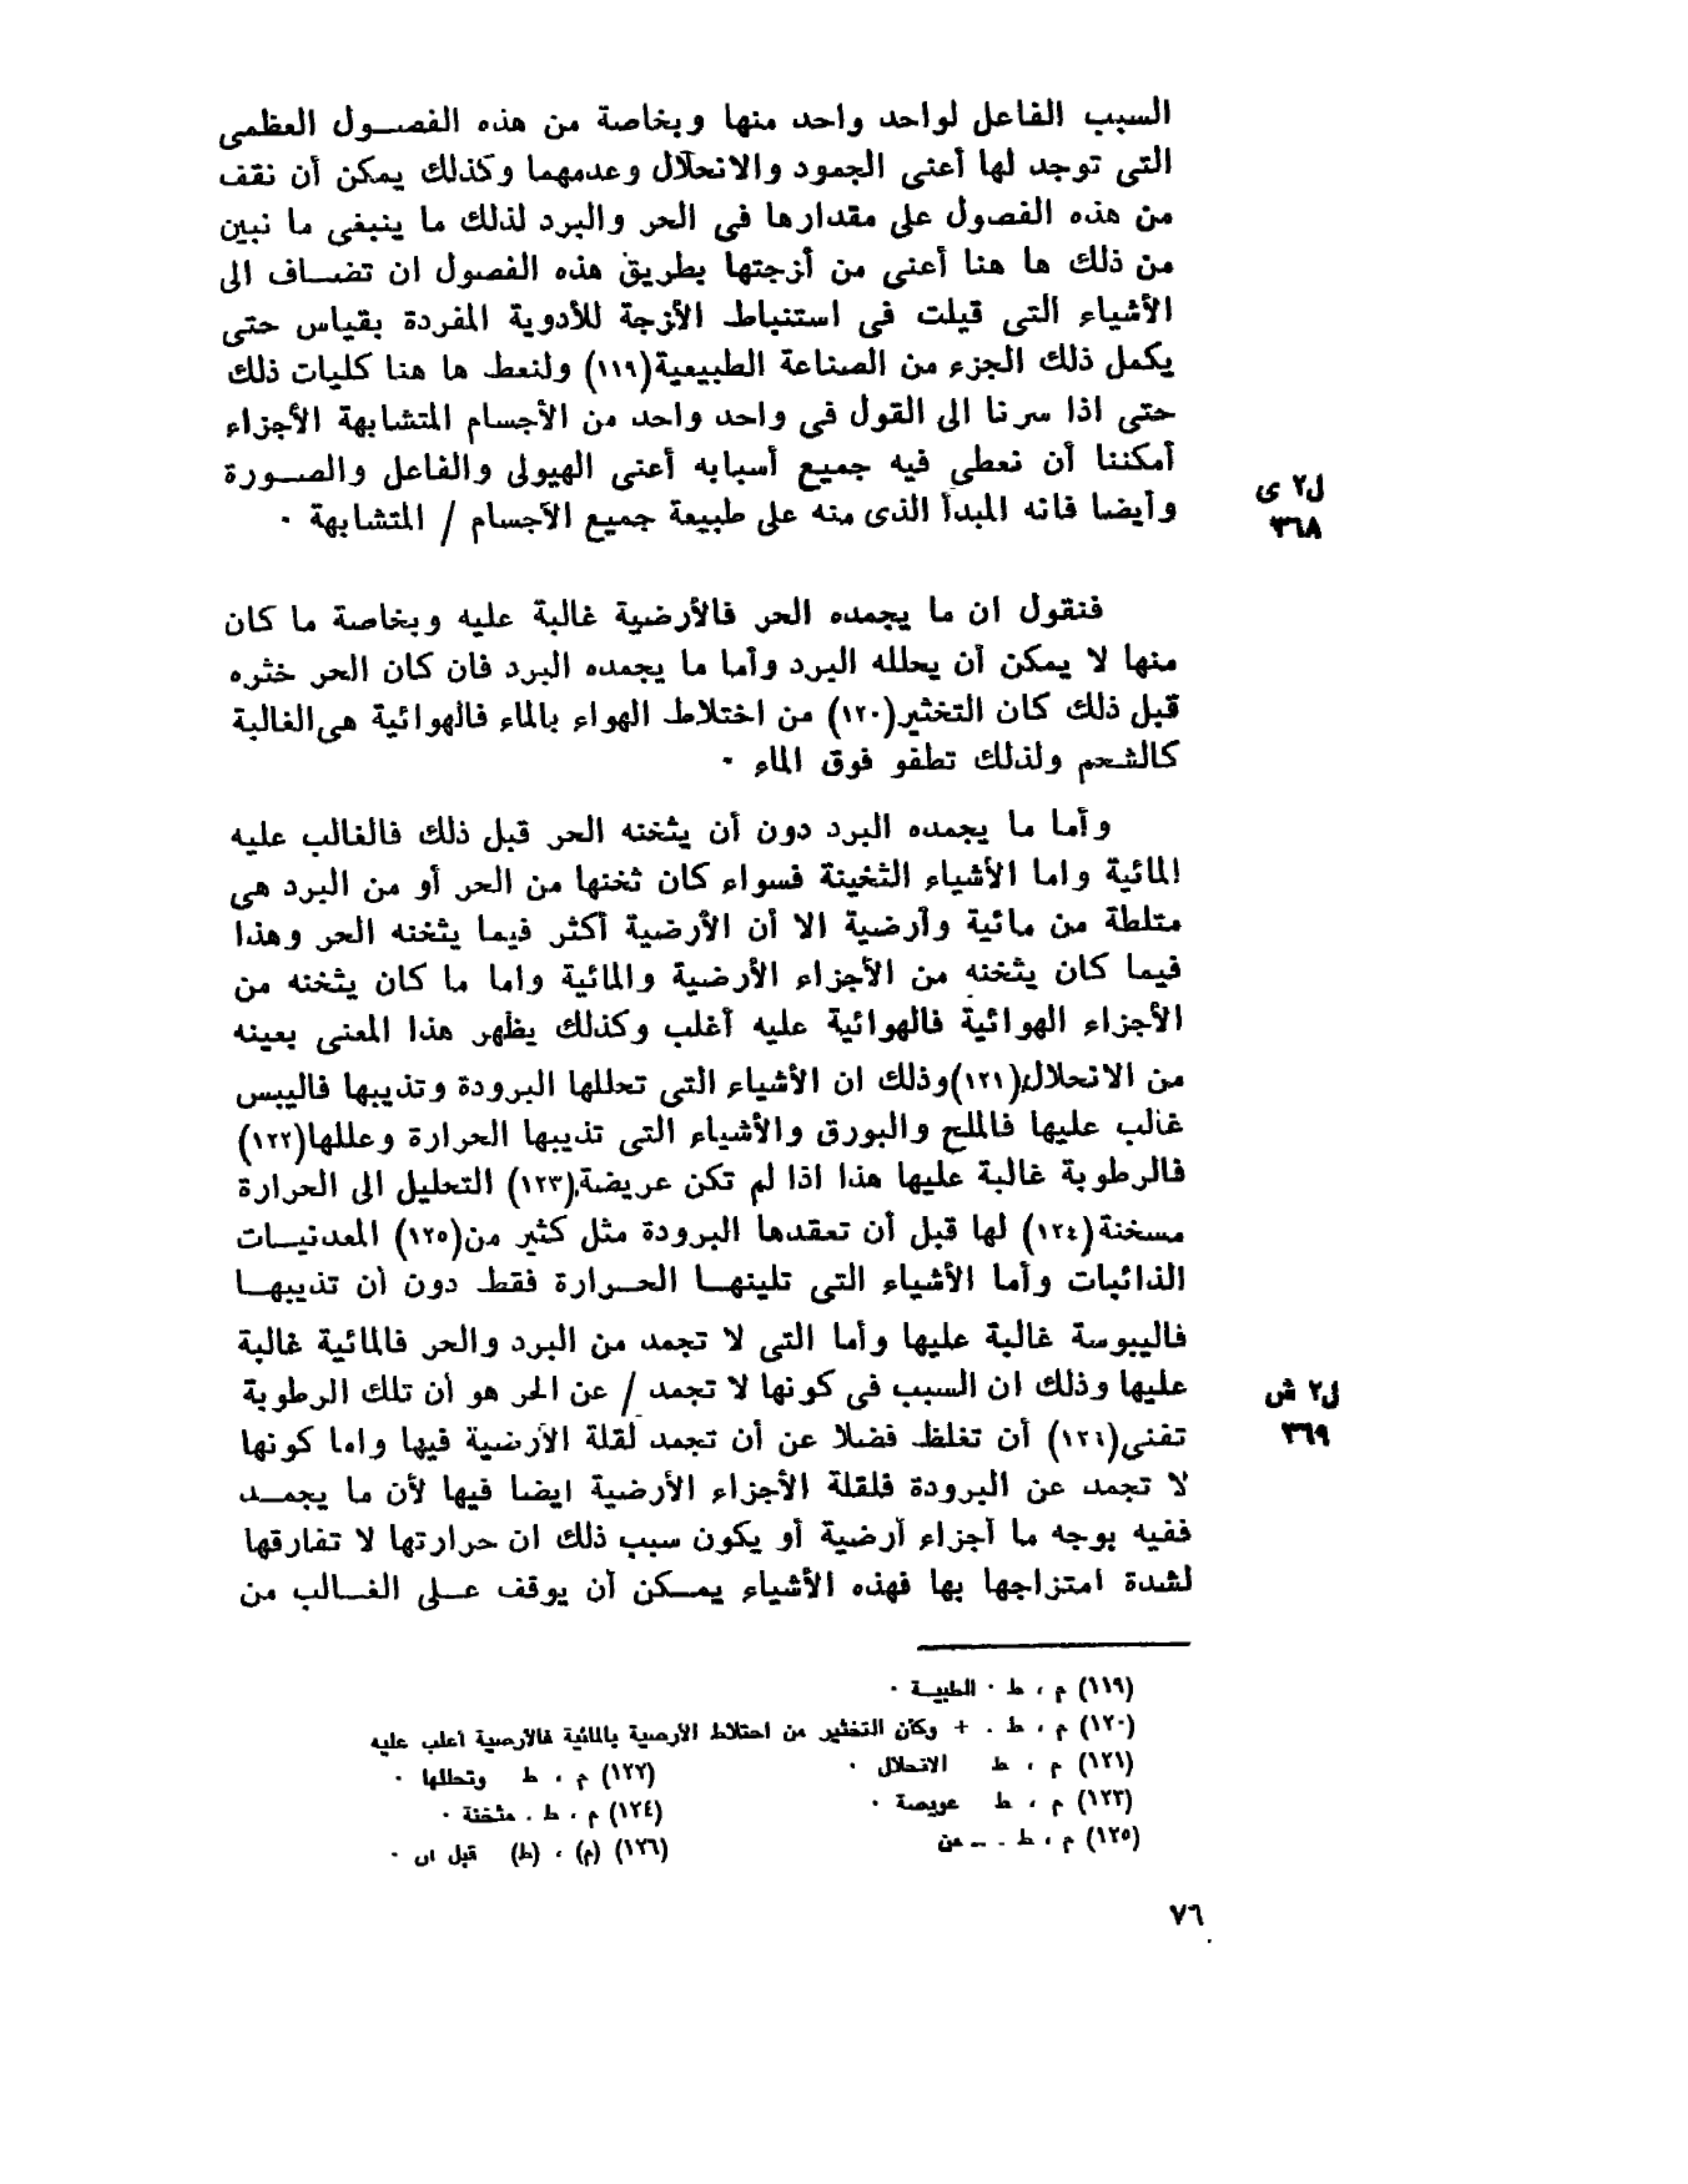 السبب الفاعل لواحد واحد منها وبخاصة من هذه الفصول العظمى
التى توجد لها أعنى الجمود والانحلال وعدمهما وكذلك يمكن أن نقف
من هذه الفصول على مقدارها فى الحر والبرد لذلك ما ينبغى ما نبين
من ذلك ها هنا أعنى من أزجتها بطريق هذه الفصول ان تضاف الى
الأشياء التى قيلت فى استنباط الأزجة للأدوية المفردة بقياس حتى
يكمل ذلك الجزء من الصناعة الطبيعية(١١٩) ولنعط ها هنا كليات ذلك
حتى اذا سرنا الى القول فى واحد واحد من الأجسام المتشابهة الأجزاء
أمكننا أن نعطى فيه جميع أسبابه أعنى الهيولى والفاعل والصورة
ل٢ ى
وأيضا فانه المبدأ الذى منه على طبيعة جميع الأجسام / المتشابهة ٠
٣٦٨
فنقول ان ما يجمده الحر فالأرضية غالبة عليه وبخاصة ما كان
منها لا يمكن أن يحلله البرد وأما ما يجمده البرد فان كان الحر خثره
قبل ذلك كان التخثير(١٢٠) من اختلاط الهواء بالماء فالهوائية هى الغالبة
كالشحم ولذلك تطفو فوق الماء ٠
وأما ما يجمده البرد دون أن يثخنه الحر قبل ذلك فالغالب عليه
المائية واما الأشياء الثخينة فسواء كان ثخنها من الحر أو من البرد هى
متلطة من مائية وأرضية الا أن الأرضية أكثر فيما يثخنه الحر وهذا
فيما كان يثخنه من الأجزاء الأرضية والمائية واما ما كان يثخنه من
الأجزاء الهوائية فالهوائية عليه أغلب وكذلك يظهر هذا المعنى بعينه
من الانحلال(١٢١)وذلك ان الأشياء التى تحللها البرودة وتذيبها فاليبس
غالب عليها فالملح والبورق والأشياء التى تذيبها الحرارة وعللها(١٢٢)
فالرطوبة غالبة عليها هذا اذا لم تكن عريضة(١٢٣) التحليل الى الحرارة
مسخنة(١٢٤) لها قبل أن تعقدها البرودة مثل كثير من(١٢٥) المعدنيات
الذائبات وأما الأشياء التى تلينها الحرارة فقط دون أن تذيبها
فاليبوسة غالبة عليها وأما التى لا تجمد من البرد والحر فالمائية غالبة
عليها وذلك ان السبب فى كونها لا تجمد / عن الحر هو أن تلك الرطوبة
ل٢ ش
تفنى(١٢٦) أن تغلظ فضلا عن أن تجمد لقلة الأرضية فيها واما كونها
٣٦٩
لا تجمد عن البرودة فلقلة الأجزاء الأرضية ايضا فيها لأن ما يجمد
ففيه بوجه ما أجزاء أرضية أو يكون سبب ذلك ان حرارتها لا تفارقها
لشدة امتزاجها بها فهذه الأشياء يمكن أن يوقف على الغالب من
(١١٩) م ، ط ٠ الطبية ٠
(١٢٠) م ، ط . + وكان التخثير من احتلاط الأرصية بالمائية فالأرصية أعلب عليه
(١٢١) م ، ط الانحلال ٠ (١٢٢) م ، ط وتحللها ٠
(١٢٣) م ، ط عويصة ٠ (١٢٤) م ، ط . مثخنة ٠
(١٢٥) م ، ط . ــ من (١٢٦) (م) ، (ط) قبل ان ٠
٧٦